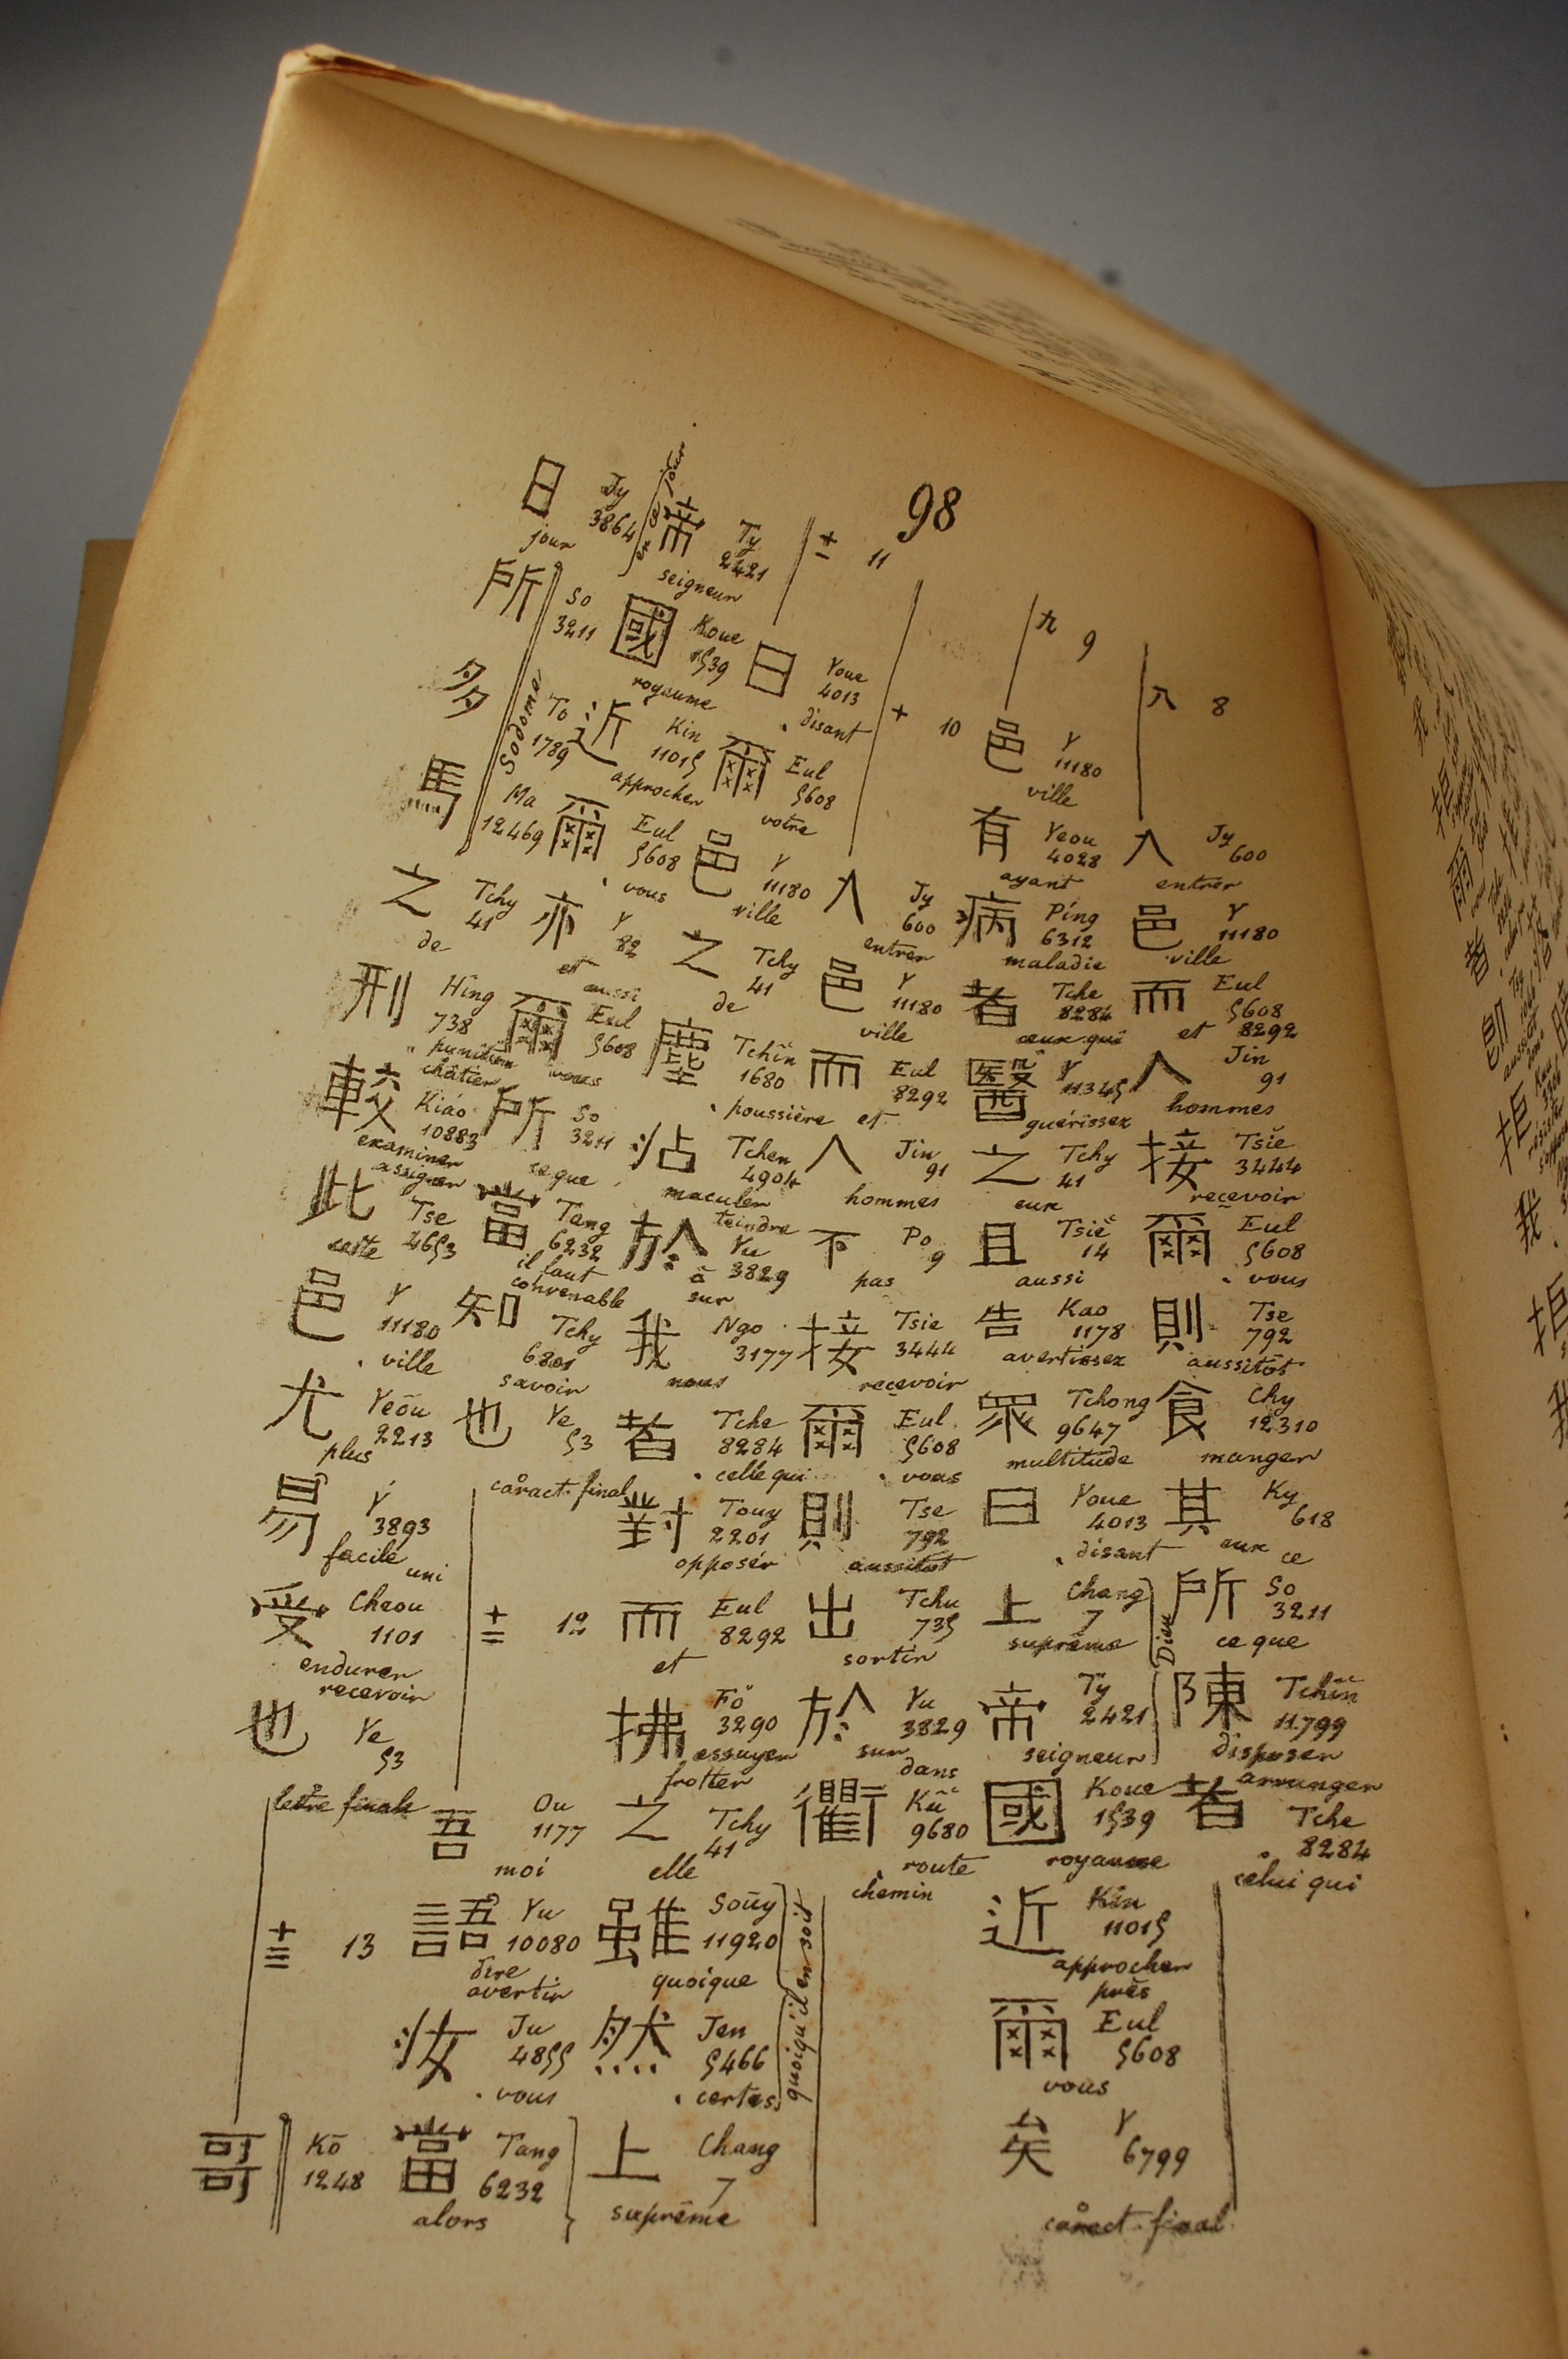 98
八 8
入 Jy 600 entrer
邑 Y 11180 ville
而 Eul 5608 8292 et
人 Jin 91 hommes
接 Tsiĕ 3444 recevoir
爾 Eul 5608 vous
則 Tse 792 aussitôt
食 Chy 12310 manger
其 Ky 618 eux ce
所 So 3211 ce que
陳 Tchin 11799 disposer arranger
者 Tche 8284 celui qui
九 9
邑 Y 11180 ville
有 Yeou 4028 ayant
病 Ping 6312 maladie
者 Tche 8284 ceux qui
醫 Y 11345 guérissez
之 Tchy 41 eux
且 Tsiĕ 14 aussi
告 Kao 1178 avertissez
眾 Tchong 9647 multitude
曰 Youe 4013 disant
上 Chang 7 suprême
帝 Ty 2421 seigneur
Dieu
國 Koue 1539 royaume
近 Kin 11015 approcher près
爾 Eul 5608 vous
矣 Y 6799 caract. final
十 10
入 Jy 600 entrer
邑 Y 11180 ville
而 Eul 8292 et
人 Jin 91 hommes
不 Po 9 pas
接 Tsie 3444 recevoir
爾 Eul 5608 vous
則 Tse 792 aussitôt
出 Tchu 735 sortir
於 Yu 3829 sur dans
衢 Kū 9680 route chemin
十一 11
曰 Youe 4013 disant
爾 Eul 5608 votre
邑 Y 11180 ville
之 Tchy 41 de
塵 Tchin 1680 poussière
沾 Tchen 4904 maculer teindre
於 Yu 3829 à sur
我 Ngo 3177 nous
者 Tche 8284 celle qui
對 Touy 2201 opposer
而 Eul 8292 et
拂 Fŏ 3290 essuyer frotter
之 Tchy 41 elle
雖 Souy 11920 quoique
然 Jen 5466 certes
quoiqu'il en soit
上 Chang 7 suprême
帝 Ty 2421 seigneur
國 Koue 1539 royaume
近 Kin 11015 approcher
爾 Eul 5608 vous
亦 Y 82 et aussi
爾 Eul 5608 vous
所 So 3211 ce que
當 Tang 6232 il faut convenable
知 Tchy 6801 savoir
也 Ye 53 caract. final
十二 12
吾 Ou 1177 moi
語 Yu 10080 dire avertir
汝 Ju 4855 vous
當 Tang 6232 alors
日 Jy 3864 jour
ce jour
所 So 3211
多 To 1789
馬 Ma 12469
Sodome
之 Tchy 41 de
刑 Hing 738 punition châtier
較 Kiáo 10883 examiner assigner
此 Tse 4653 cette
邑 Y 11180 ville
尤 Yeōu 2213 plus
易 Y 3893 facile uni
受 Cheou 1101 endurer recevoir
也 Ye 53 lettre finale
十三 13
哥 Kō 1248